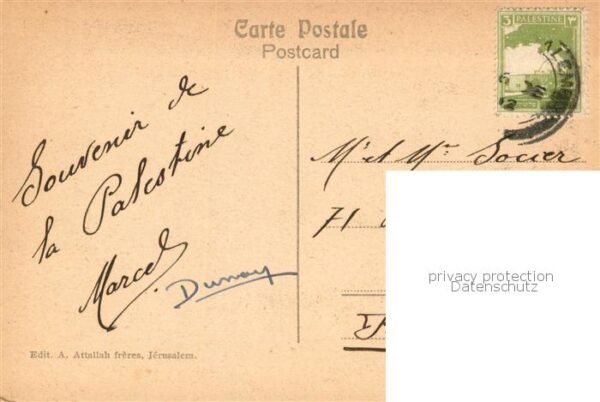 Carte Postale
Postcard
3 PALESTINE ٣
Souvenir de
la Palestine
Marcel
Dunoy
Edit. A. Attallah frères, Jérusalem.
Mr et Mme Socier
71
privacy protection
Datenschutz